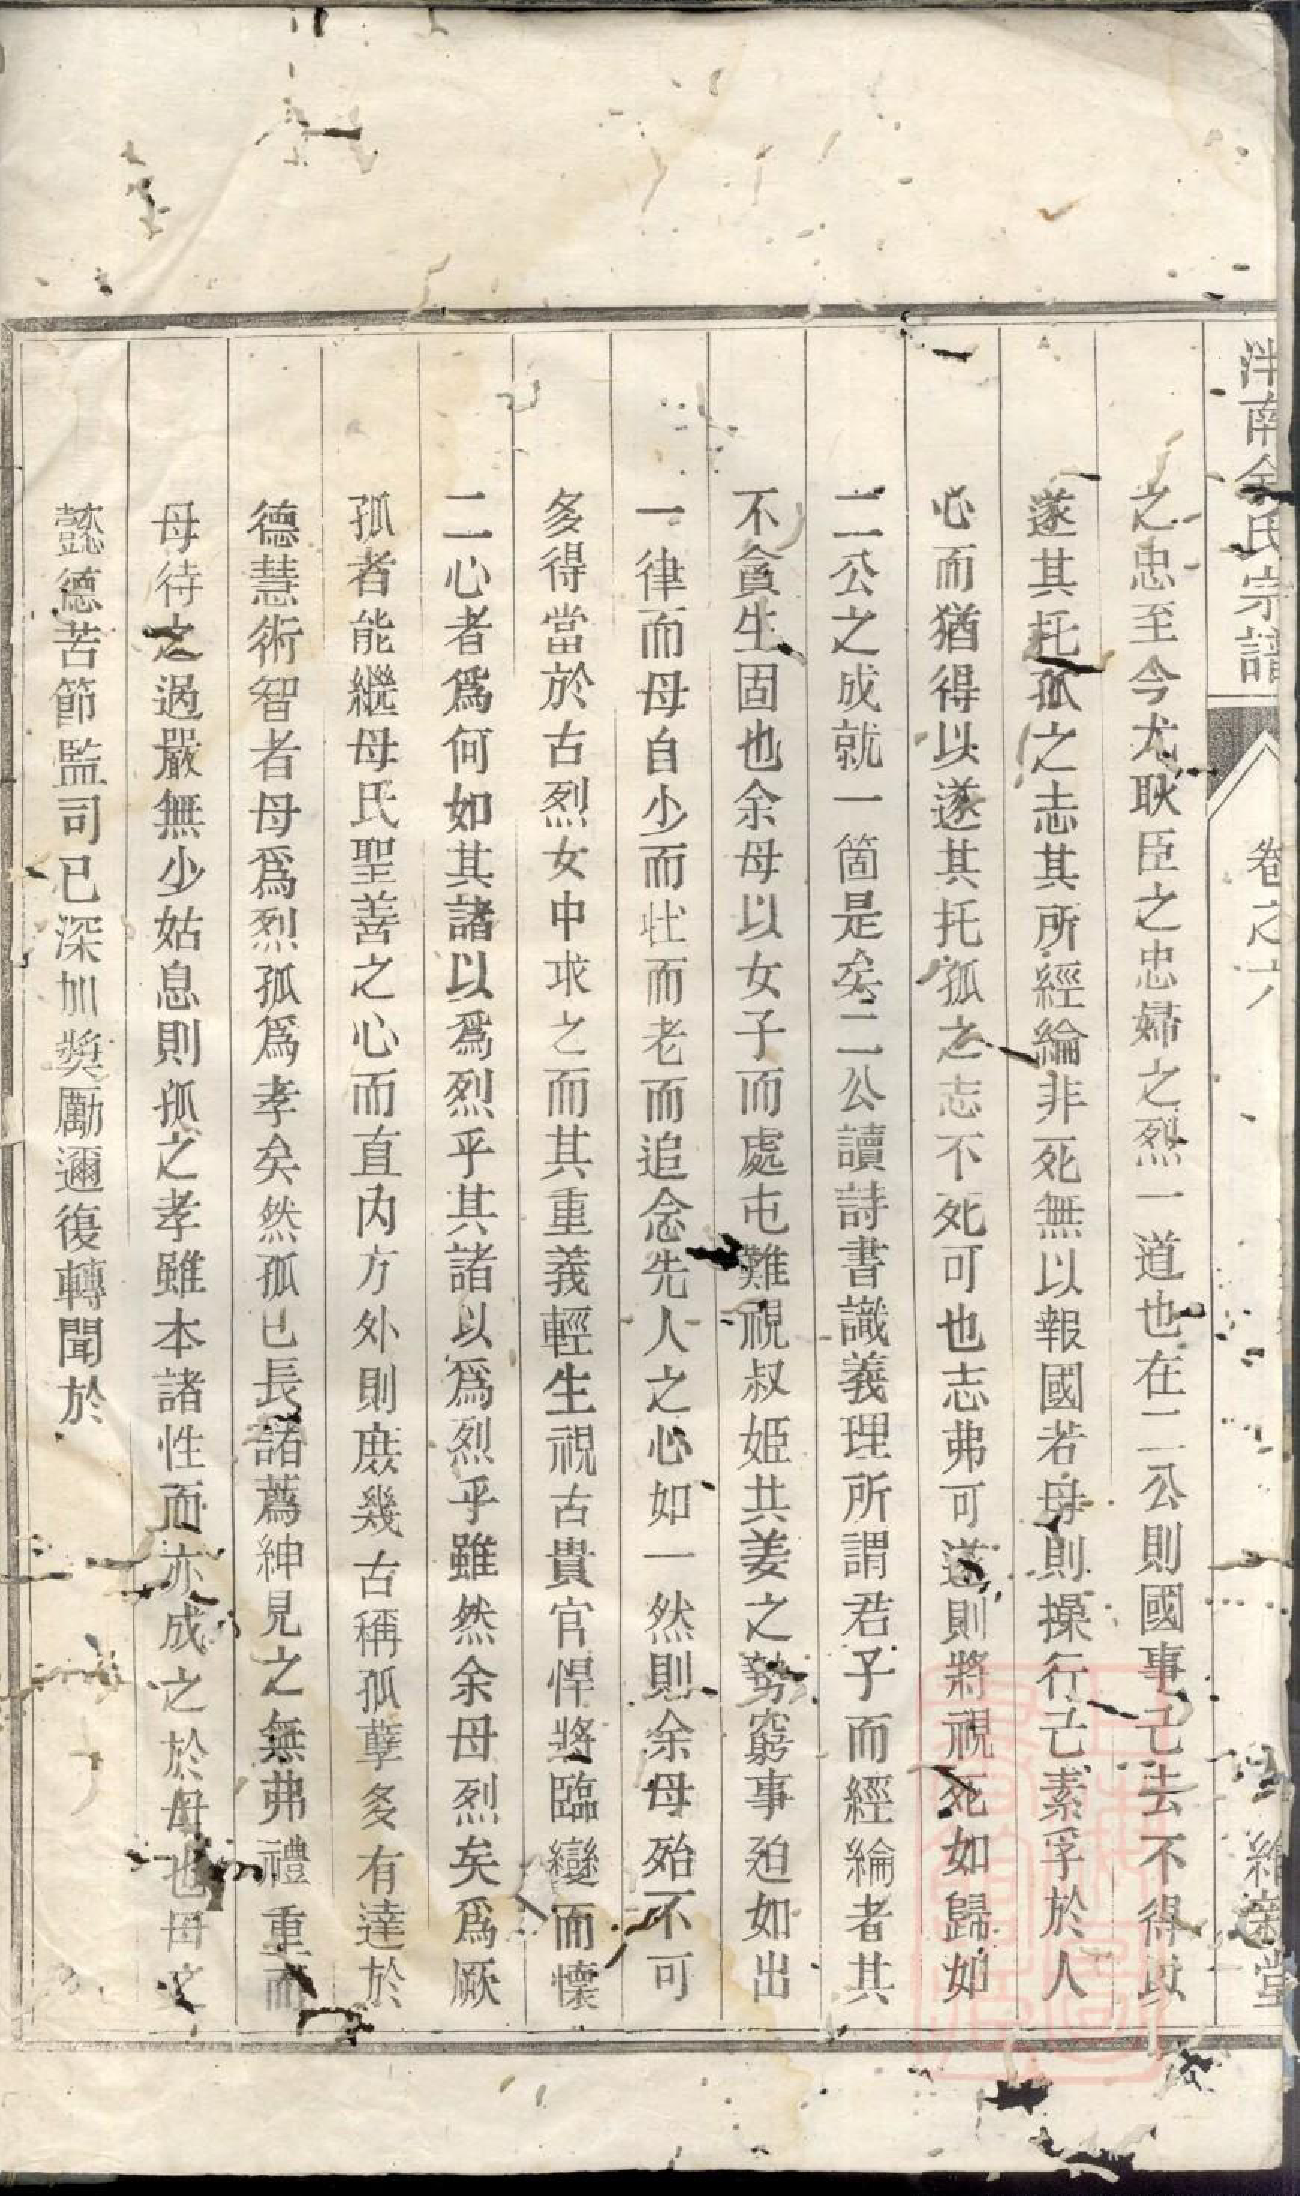 南余氏宗譜
卷之六
維新堂
之忠至今尤耿臣之忠婦之烈一道也在二公則國事已去不得以
遂其托孤之志其所經綸非死無以報國若母則操行已素孚於人
心而猶得以遂其托孤之志不死可也志弗可遂則將視死如歸如
二公之成就一箇是矣二公讀詩書識義理所謂君子而經綸者其
不貪生固也余母以女子而處屯難視叔姬共姜之勢窮事廹如出
一律而母自少而壯而老而追念先人之心如一然則余母殆不可
多得當於古烈女中求之而其重義輕生視古貴官悍將臨變而懷
二心者爲何如其諸以爲烈乎其諸以爲烈乎雖然余母烈矣爲厥
孤者能繼母氏聖善之心而直内方外則庻幾古稱孤孽多有達於
德慧術智者母爲烈孤爲孝矣然孤已長諸薦紳見之無弗禮重而
母待之過嚴無少姑息則孤之孝雖本諸性而亦成之於母也母之
懿德苦節監司已深加奬勵邇復轉聞於